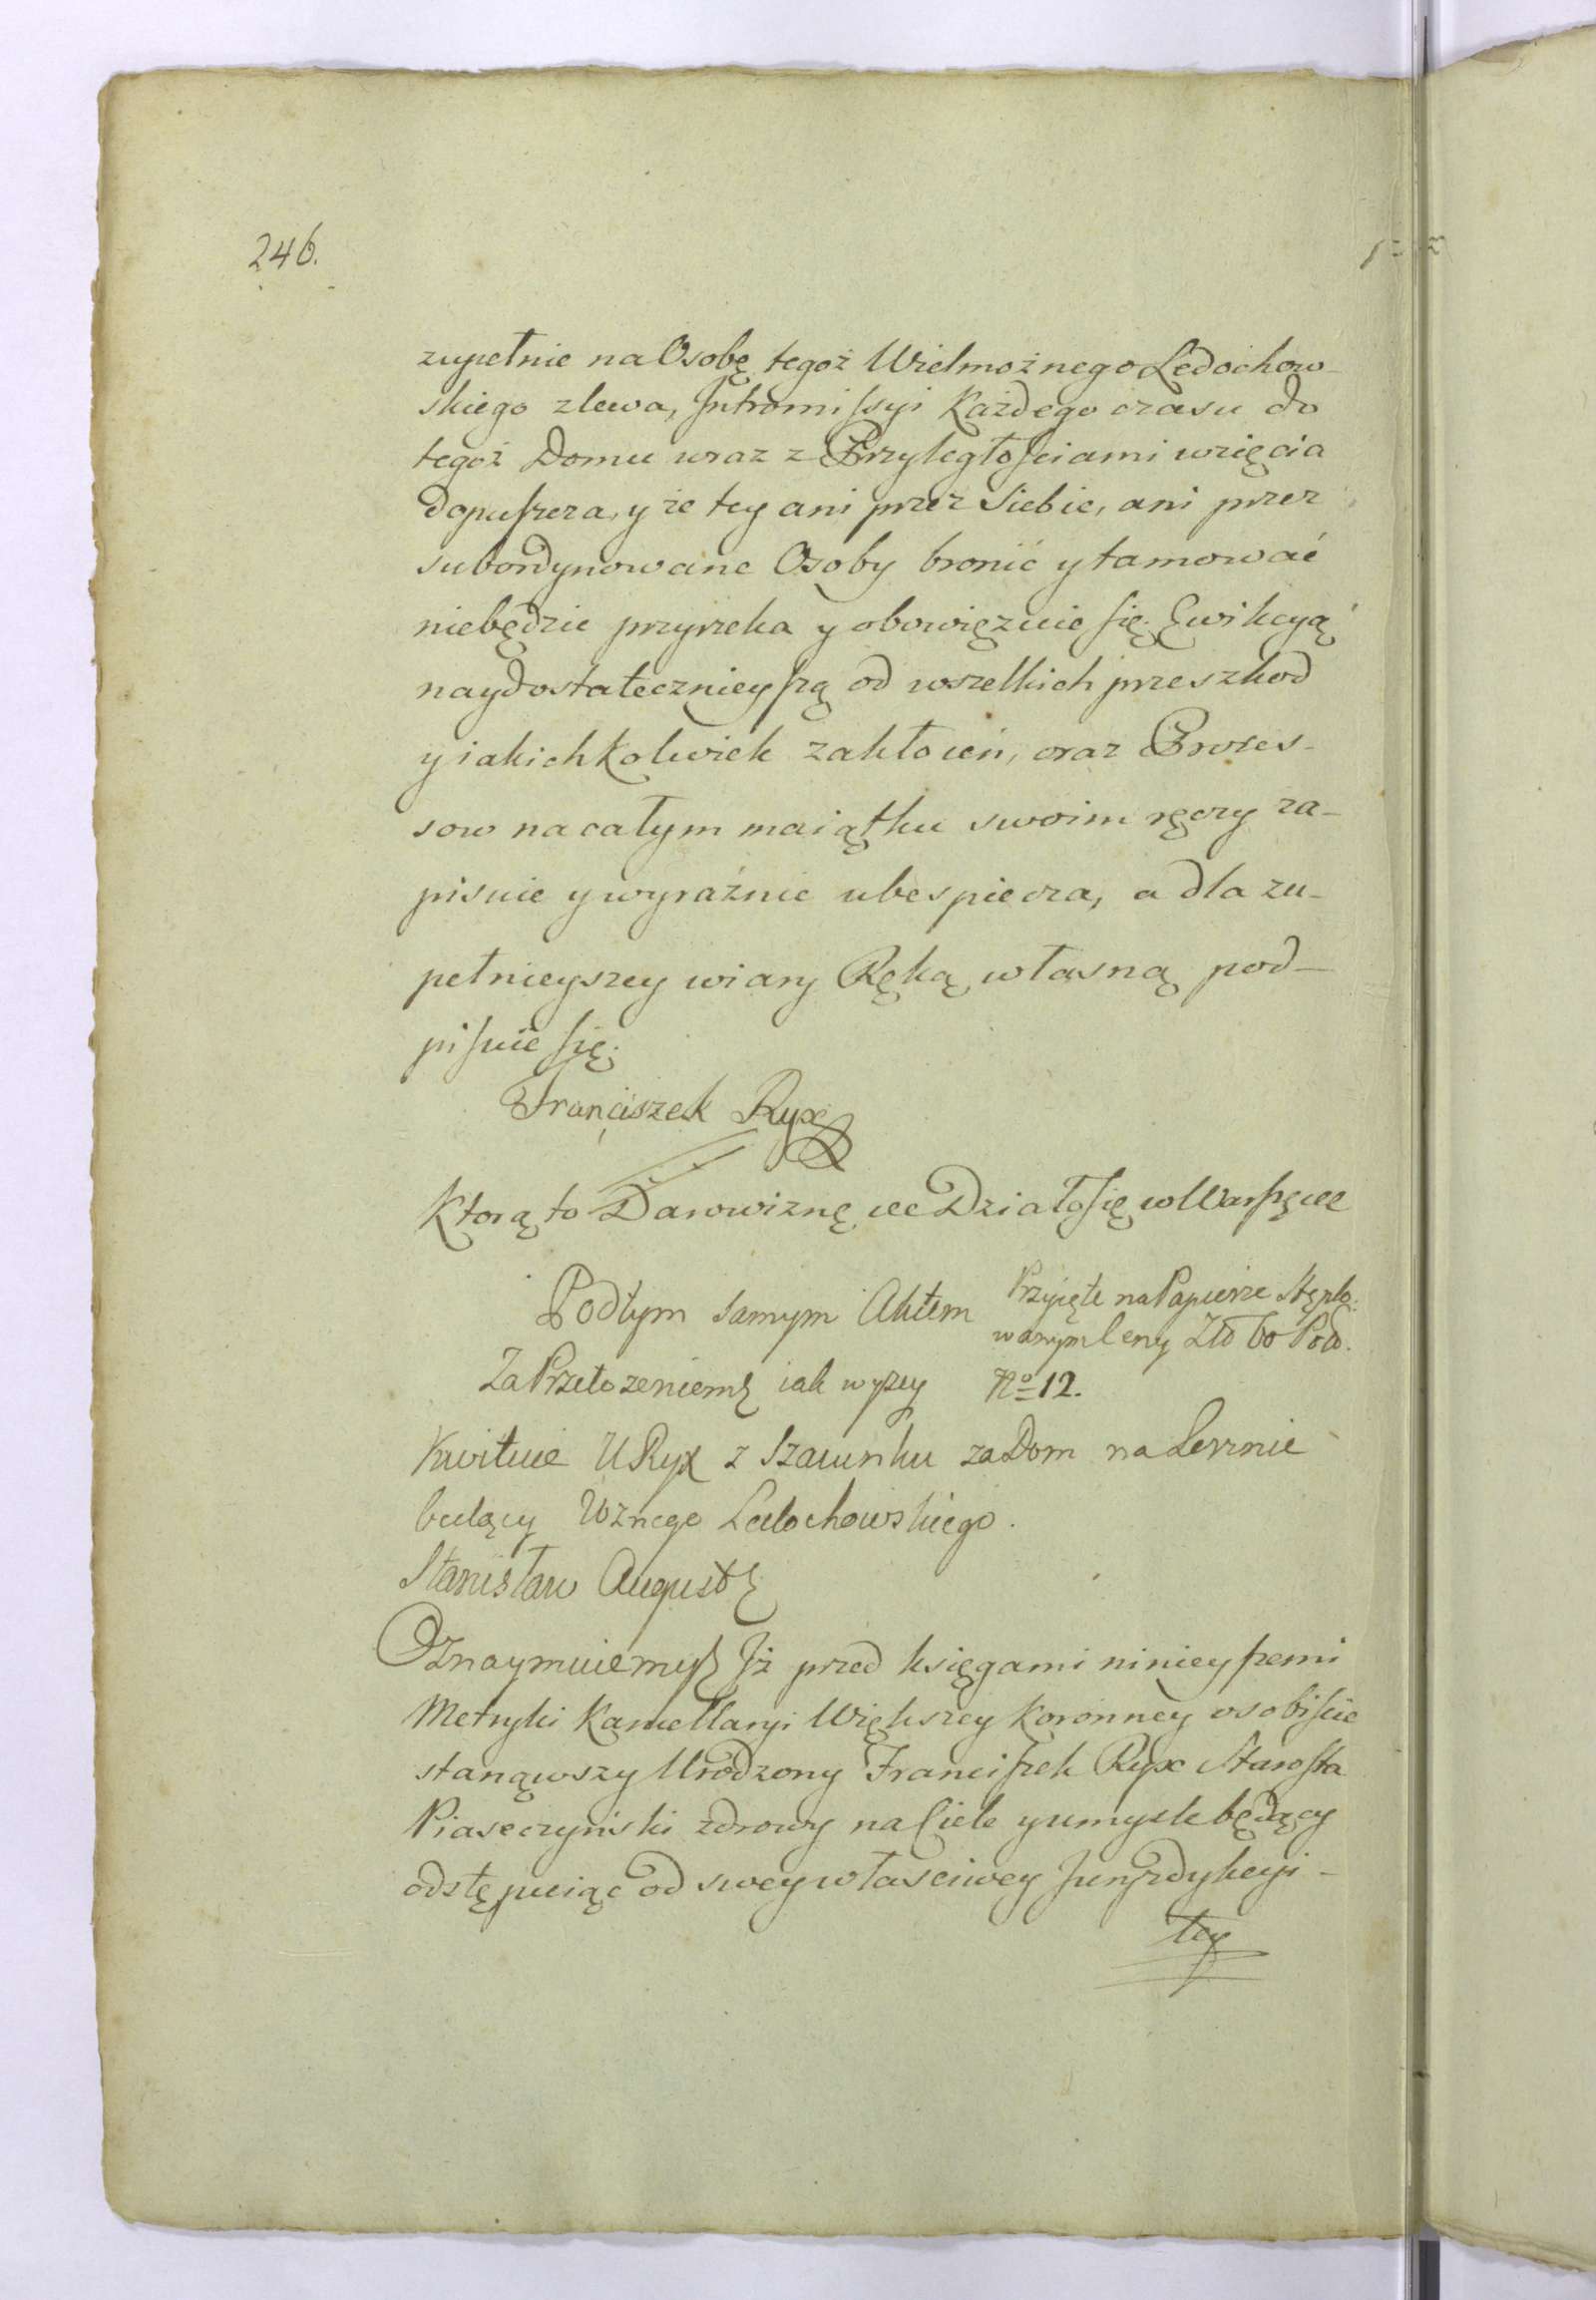 246.
zupełnie na Osobę tegoż Wielmożnego Ledochow-
skiego zlewa, Intromissyi Każdego czasu do
tegoż Domu wraz z Przyległościami wzięcia
dopuszcza, y że tey ani przez Siebie, ani przez
subordynowane Osoby bronić y tamować
niebędzie przyrzeka y obowięzuie się. Ewikcyą
naydostatecznieyszą od wszelkich przeszkod
y iakichkolwiek zakłoceń, oraz Proces-
sow na całym maiątku swoim ręczy za-
pisuie y wyraźnie ubespiecza, a dla zu-
pełnieyszey wiary Ręką własną pod-
pisuie się.
Franciszek Ryx
Ktorą to Darowiznę etc Działo się w Warszawie
Pod tym samym Aktem
Przyięte na Papierze Stęplo:
wanym Ceny Zło 60 Pod.
Za Przełozeniem iak wyzey
No 12.
Kwituie U Ryx z Szacunku za Dom na Lesznie
będący Wznego Ledochowskiego.
Stanisław August
Oznaymuiemy Iż przed księgami ninieyszemi
Metryki Kancellaryi Większey Koronney osobiście
stanąwszy Urodzony Franciszek Ryx Starosta
Piaseczyński zdrowy na Ciele y umyśle będący
odstępuiąc od swey własciwey Juryzdykcyi -
tey